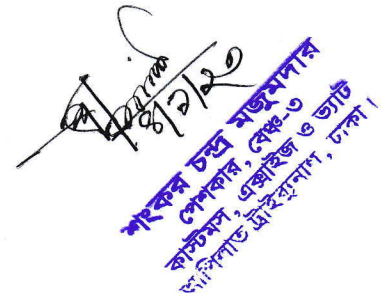 ৪/২/২০
শংকর চন্দ্র মজুমদার
পেশকার, বেঞ্চ-৩
কাস্টমস, এক্সাইজ ও ভ্যাট
আপিলাত ট্রাইব্যুনাল, ঢাকা।